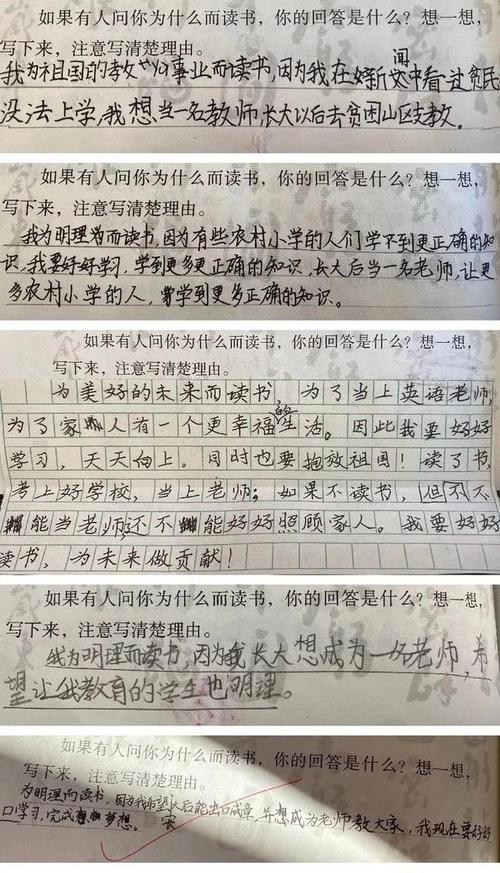 如果有人问你为什么而读书，你的回答是什么？想一想，
写下来，注意写清楚理由。
我为祖国的教育事业而读书，因为我在新闻中看过贫民
没法上学，我想当一名教师长大以后去贫困山区支教。
如果有人问你为什么而读书，你的回答是什么？想一想，
写下来，注意写清楚理由。
我为明理而读书，因为有些农村小学的人们学不到更正确的知
识，我要好好学习，学到更多更正确的知识，长大后当一名老师，让更
多农村小学的人，学到更多正确的知识。
如果有人问你为什么而读书，你的回答是什么？想一想，
写下来，注意写清楚理由。
为美好的未来而读书，为了当上英语老师，
为了家人有一个更幸福的生活。因此我要好好
学习，天天向上。同时也要抱放祖国！读了书，
考上好学校，当上老师；如果不读书，但不
能当老师，还不能好好照顾家人。我要好好
读书，为未来做贡献！
如果有人问你为什么而读书，你的回答是什么？想一想，
写下来，注意写清楚理由。
我为明理而读书，因为我长大想成为一名老师，希
望让我教育的学生也明理。
如果有人问你为什么而读书，你的回答是什么？想一想，
写下来，注意写清楚理由。
为明理而读书，因为我希望长大后能出口成章，并想成为老师教大家，我现在要好好
学习，完成梦想。